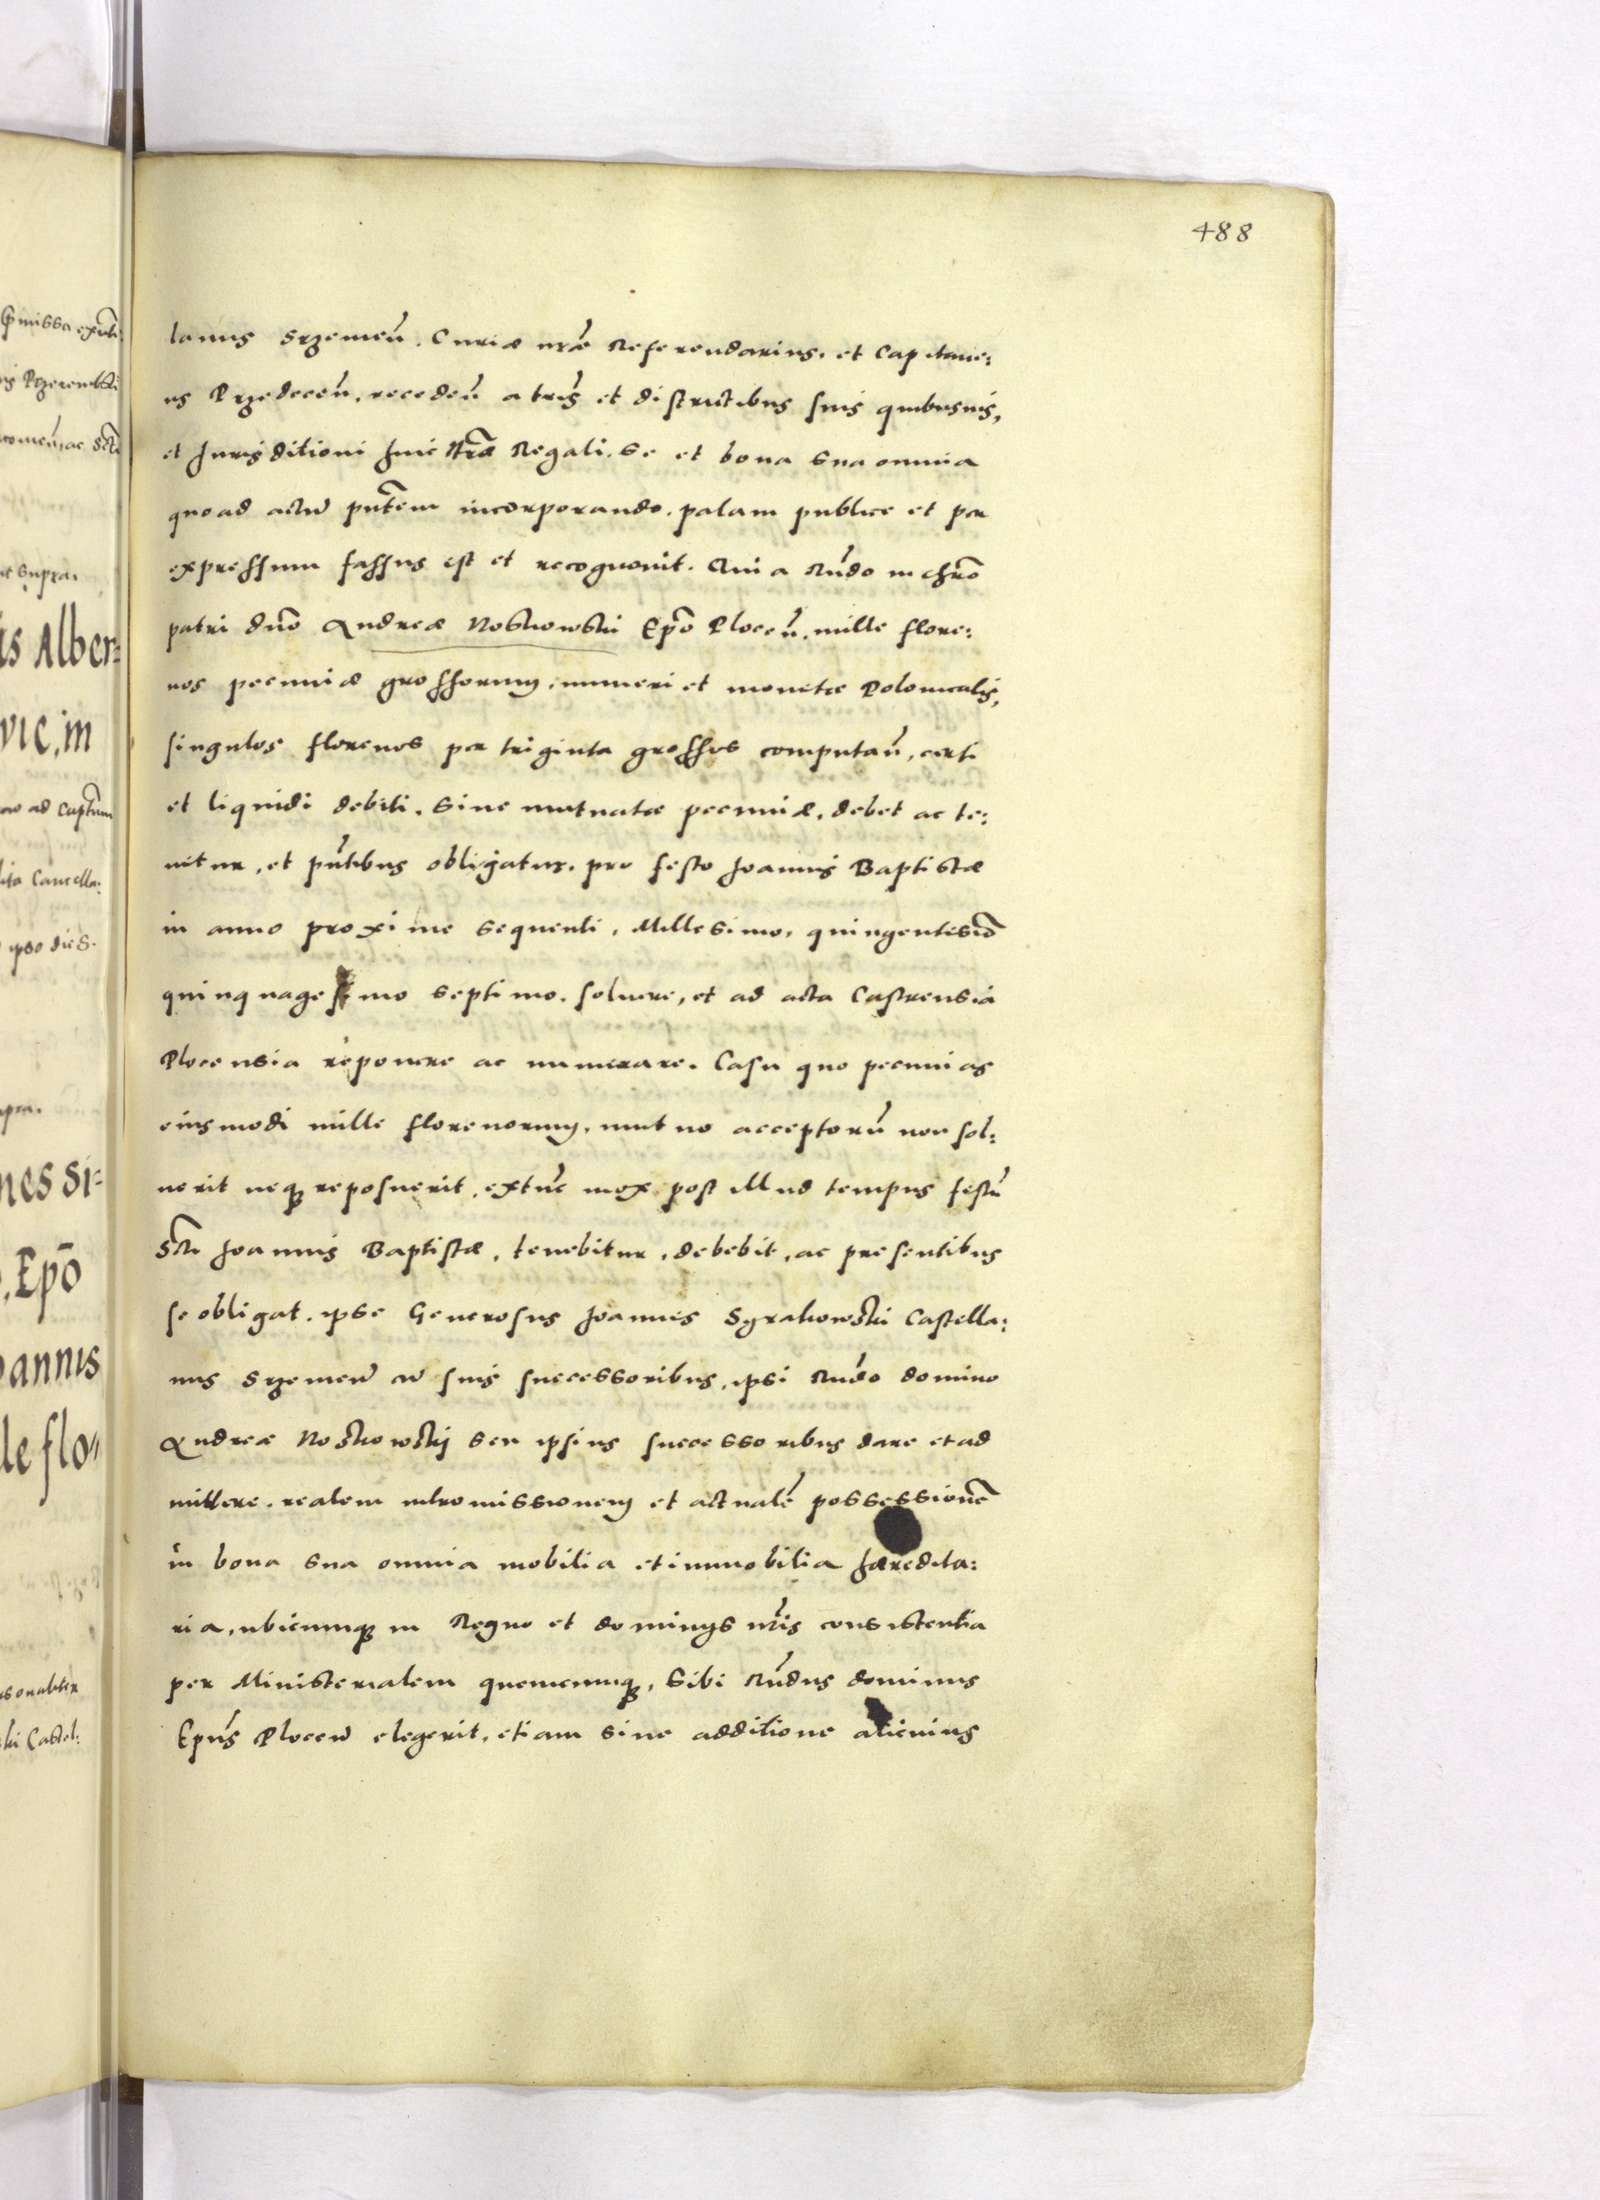 488
lanus Srzemeñ. Curiæ nr̃æ Referendarius, et Capitane:
us Przedeceñ, recedeñ a tr̃is et districtibus suis quibusuis,
et Jurisditioni huic Nr̃æ Regali. se et bona sua omnia
quoad actũ pñtem incorporando. palam publice et per
expressum fassus est et recognouit. Quia Rñdo in chr̃o
patri dño Andreæ Noskowski Ep̃o Ploceñ. mille flore:
nos pecuniæ grossorum, numeri et monetæ Polonicalis,
singulos florenos per triginta grossos computañ, certi
et liquidi debiti. sine mutuatæ pecuniæ, debet ac te:
nitur, et pñtibus obligatur. pro festo Joannis Baptistæ
in anno proxime sequenti, Millesimo, quingentesiõ
quinquagesimo septimo. soluere, et ad acta Castrensia
Plocensia reponere ac numerare. Casu quo pecunias
eiusmodi mille florenorum, mutuo acceptorũ non sol:
uerit neq3 reposuerit, extũc mox post illud tempus festũ
Scti Joannis Baptistæ, tenebitur, debebit, ac presentibus
se obligat. ipse Generosus Joannes Syrakowski Castella:
nus Srzemeñ cũ suis successoribus, ipsi Rñdo domino
Andreæ Noskowskij seu ipsius successoribus dare et ad
mittere. realem intromissionem et actualẽ possessionẽ
in bona sua omnia mobilia et immobilia hæredita:
ria, ubicumq3 in Regno et dominijs nr̃is consistentia
per Ministerialem quemcumq3, sibi Rñdus dominus
Ep̃us Ploceñ elegerit, etiam sine additione alicuius